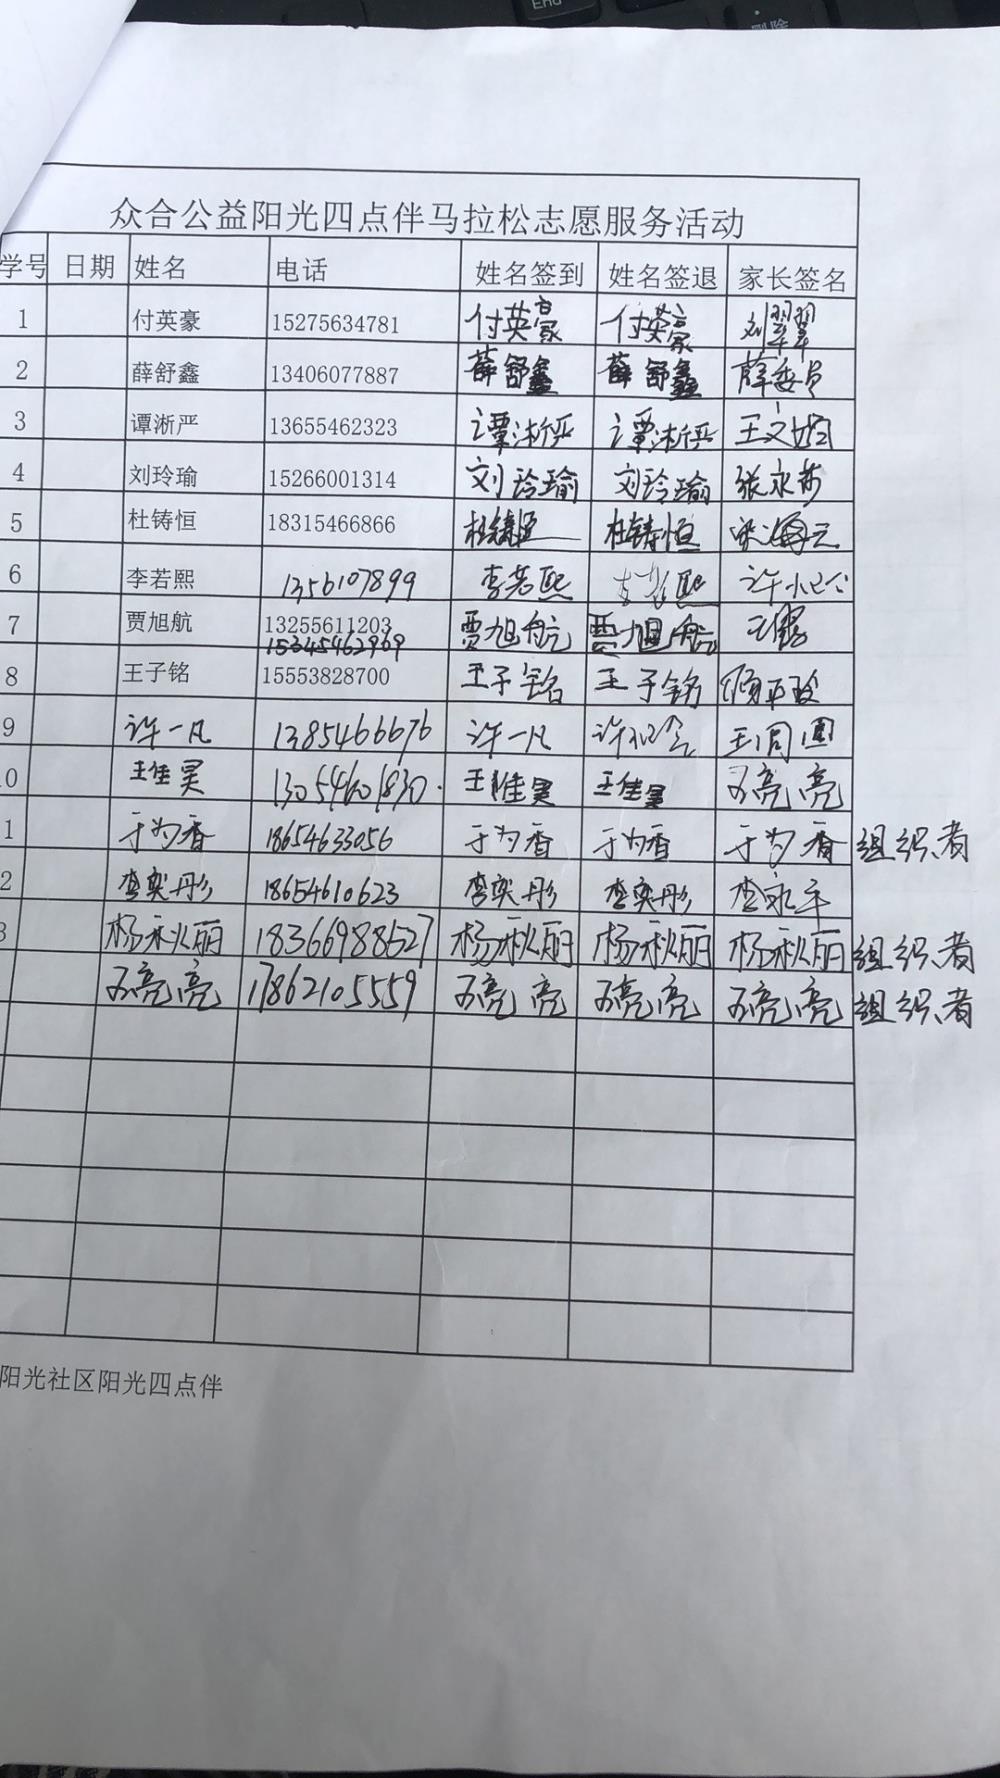 End
删除
众合公益阳光四点伴马拉松志愿服务活动
学号 日期 姓名 电话 姓名签到 姓名签退 家长签名
1 付英豪 15275634781 付英豪 付英豪 刘翠翠
2 薛舒鑫 13406077887 薛舒鑫 薛舒鑫 薛委员
3 谭淅严 13655462323 谭淅严 谭淅严 王文娟
4 刘玲瑜 15266001314 刘玲瑜 刘玲瑜 张永莎
5 杜铸恒 18315466866 杜铸恒 杜铸恒
6 李若熙 1356107899 李若熙 李若熙
7 贾旭航 13255611203 贾旭航 贾旭航
15345462969
8 王子铭 15553828700 王子铭 王子铭
9 许一凡 13854666676 许一凡
0 王佳昊 13054601830. 王佳昊 王佳昊 王亮亮
1 于为香 18654633056 于为香 于为香 于为香 组织者
2 李奕彤 18654610623 李奕彤 李奕彤 李永平
3 杨秋丽 18366988527 杨秋丽 杨秋丽 杨秋丽 组织者
王亮亮 17862105559 王亮亮 王亮亮 王亮亮 组织者
阳光社区阳光四点伴